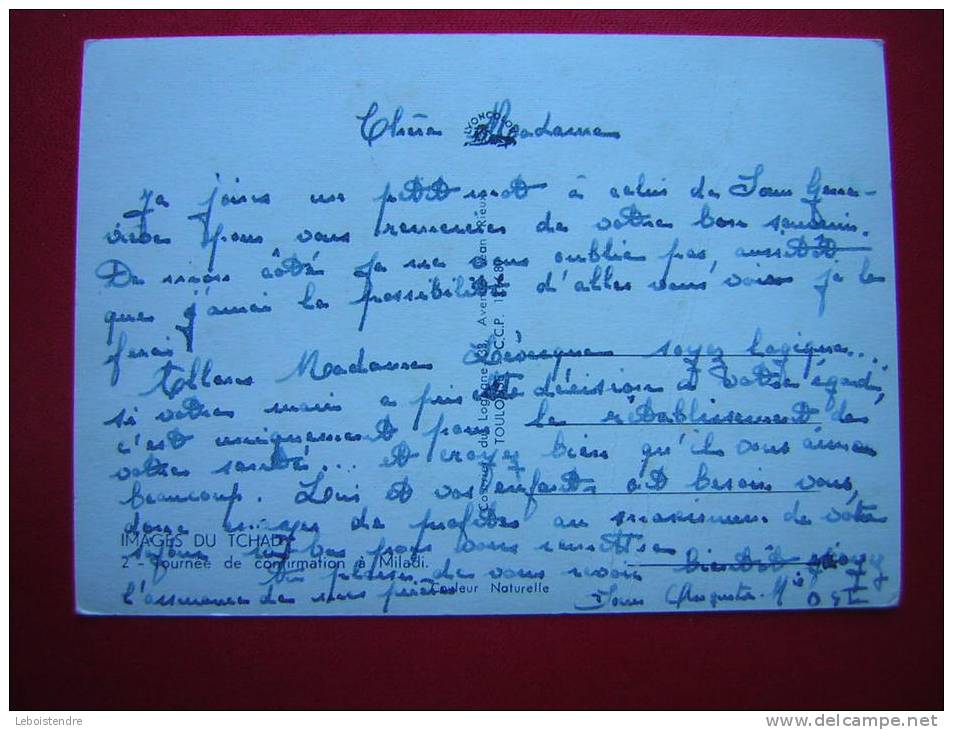 Chère Madame
Je joins un petit mot à celui de Sœur Gene-
viève pour vous remercier de votre bon souvenir.
De mon côté je ne vous oublie pas, aussitôt
que j'aurai la possibilité d'aller vous voir je le
ferai
Allons Madame Lévecque soyez logique...
si votre mari a pris cette décision à votre égard,
c'est uniquement pour le rétablissement de
votre santé... et croyez bien qu'ils vous aiment
beaucoup. Louis et vos enfants ont besoin vous,
donc de profiter au maximum de votre
séjour pour vous remettre
Au plaisir de vous revoir bientôt
l'assurance de mes prières Sœur Augusta M
LYONCOLOR
Courrier du Logone Avenue Jean Rieux
TOULOUSE C.C.P.
IMAGES DU TCHAD
2 - Tournée de confirmation à Miladi.
Couleur Naturelle
Leboistendre
www.delcampe.net